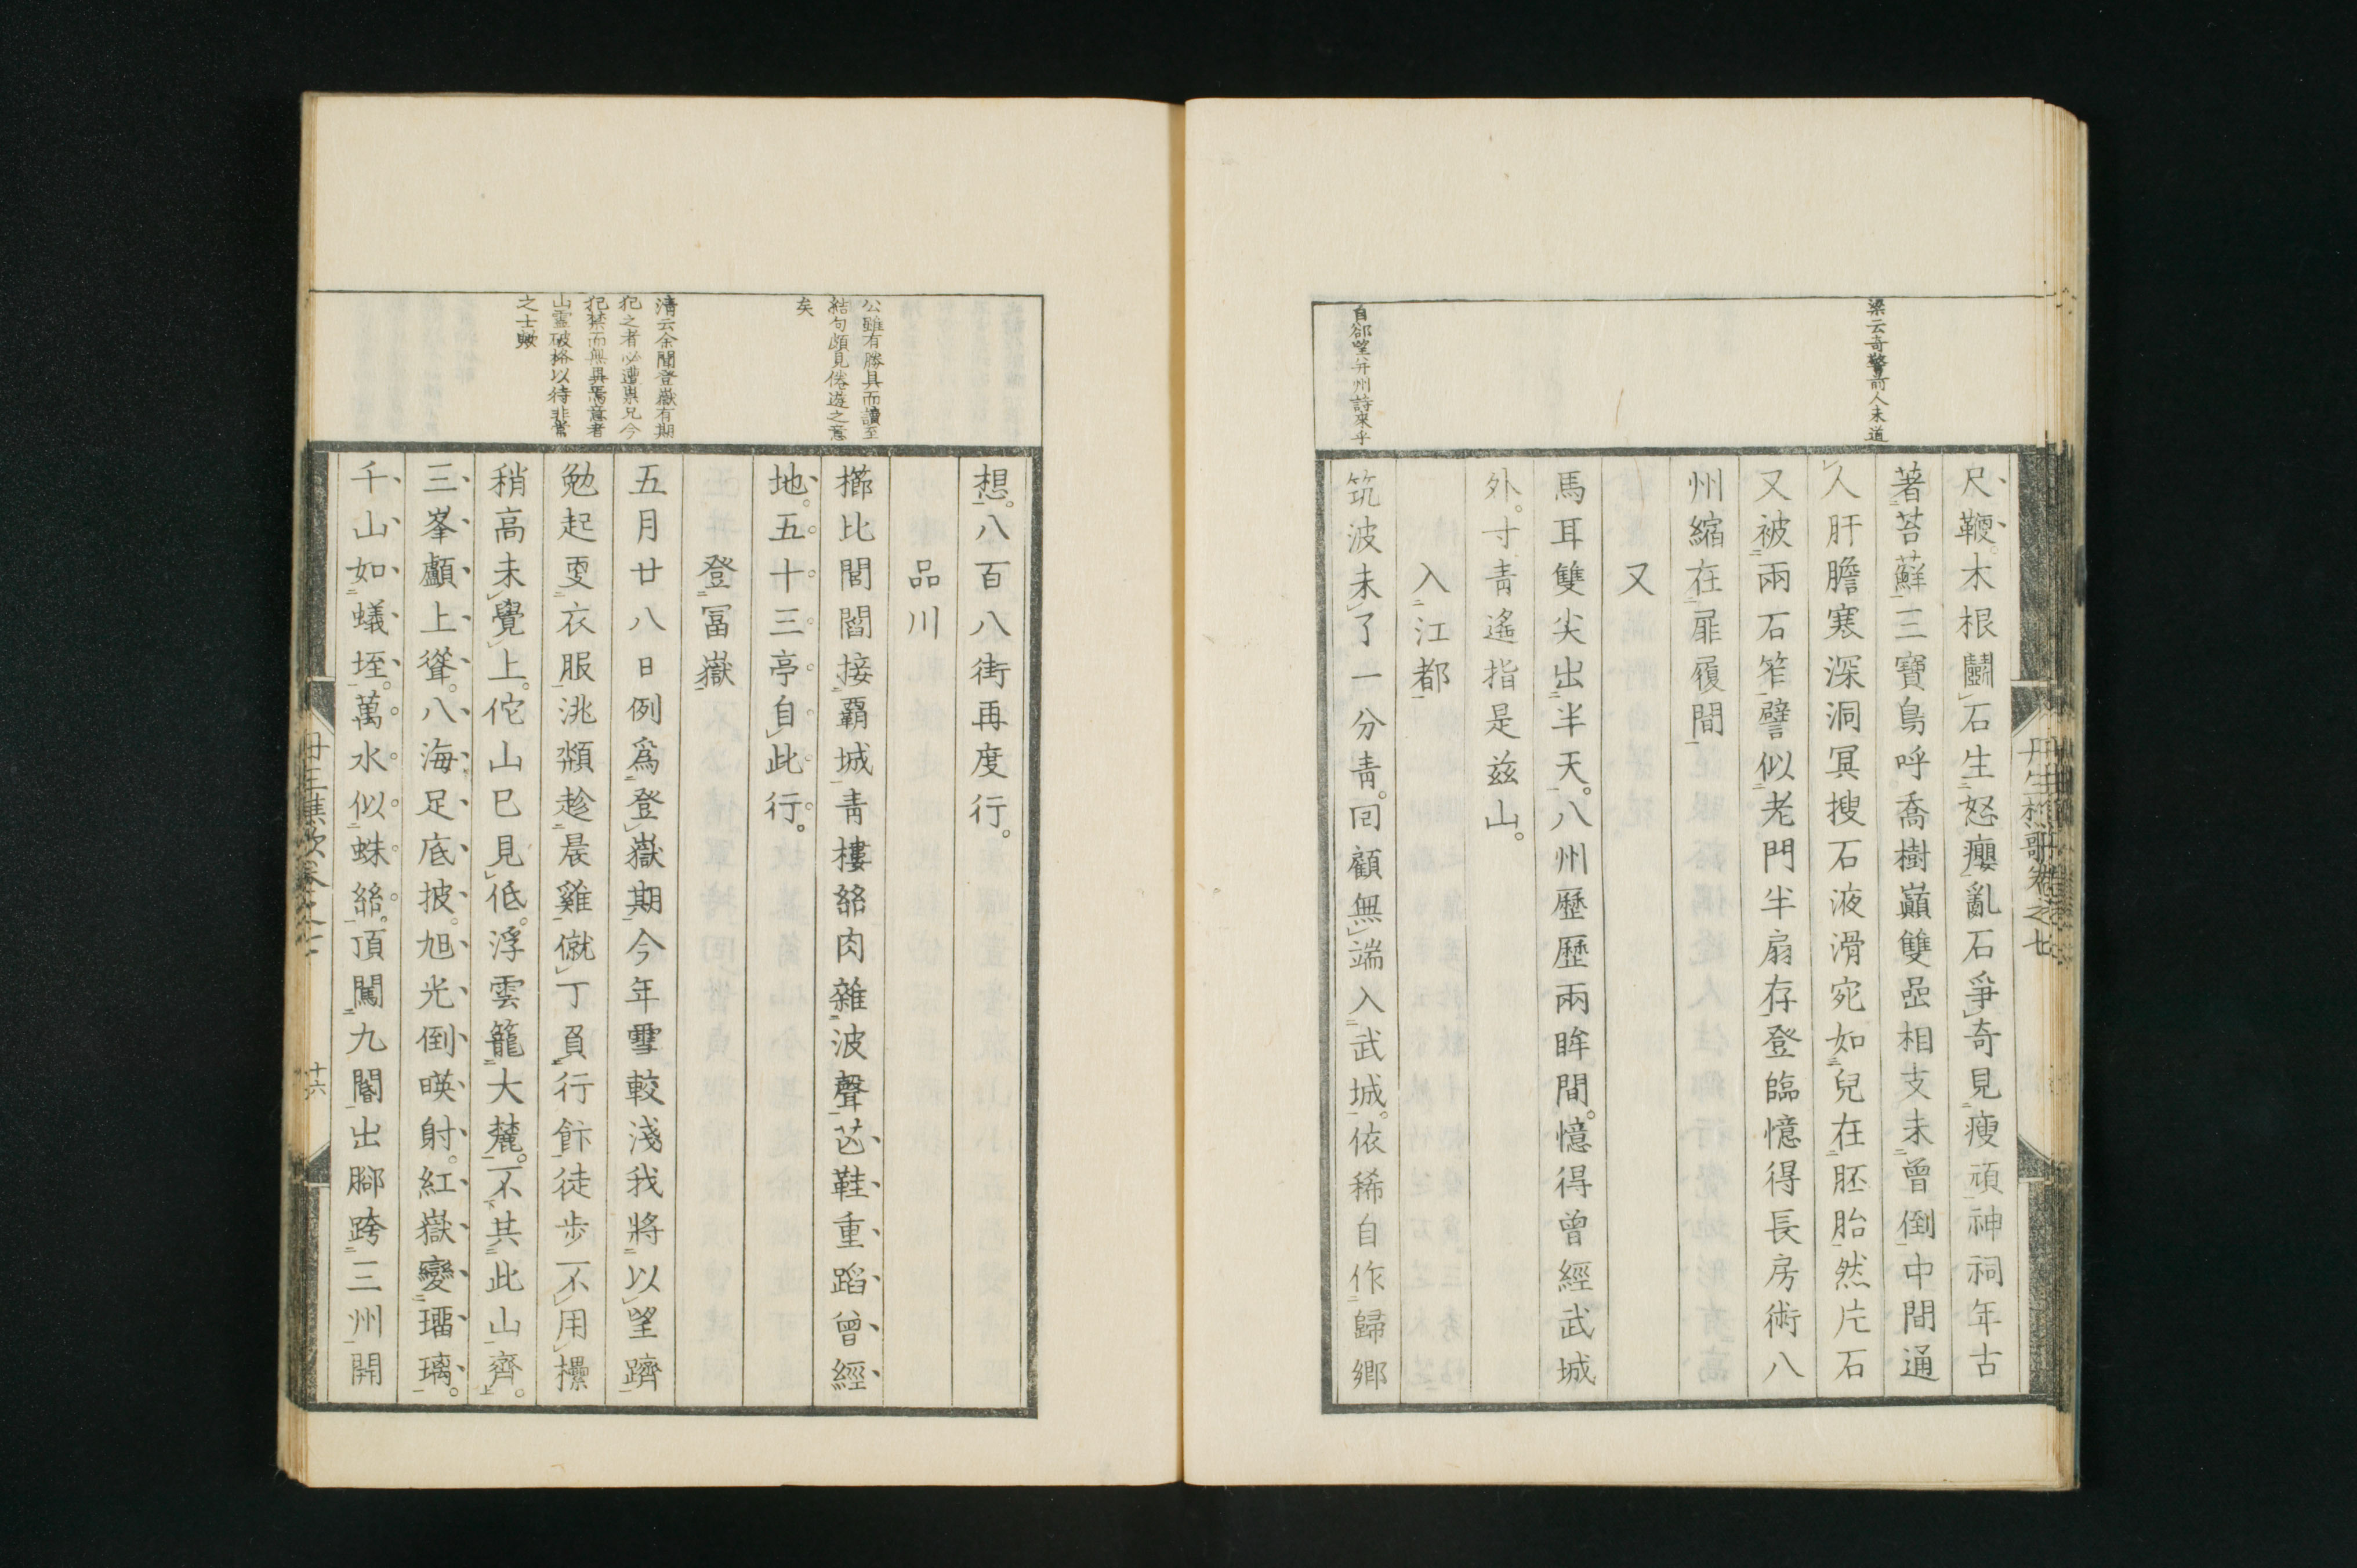 梁云奇警前人未道
自郤望并州詩來乎
尺鞭木根鬭石生怒癭亂石爭奇見瘦頑神祠年古
著苔蘚三寶鳥呼喬樹巔雙嵒相支未曾倒中間通
人肝膽寒深洞冥搜石液滑宛如兒在胚胎然片石
又被兩石笮譬似老門半扇存登臨憶得長房術八
州縮在扉履間
又
馬耳雙尖出半天八州歷歷兩眸間憶得曾經武城
外寸青遙指是茲山
入江都
筑波未了一分青回顧無端入武城依稀自作歸鄉
丹生樵歌卷之七
公雖有勝具而讀至
結句頗見倦遊之意
矣
清云余聞登嶽有期
犯之者必遭祟兄今
犯禁而無異焉意者
山靈破格以待非常
之士歟
想八百八街再度行
品川
櫛比閭閻接霸城青樓絲肉雜波聲芒鞋重蹈曾經
地五十三亭自此行
登冨嶽
五月廿八日例爲登嶽期今年雪較淺我將以望躋
勉起更衣服洮頮趁晨雞僦丁負行飦徒步不用欙
稍高未覺上佗山已見低浮雲籠大麓不共此山齊
三峯顱上聳八海足底披旭光倒暎射紅嶽變瑠璃
千山如蟻垤萬水似蛛絲頂闖九閽出腳跨三州開
十六